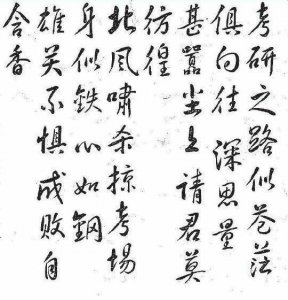 考研之路似苍茫
俱向往 深思量
甚嚣尘上请君莫
彷徨
北风啸杀掠考场
身似铁心如钢
雄关不惧成败自
含香